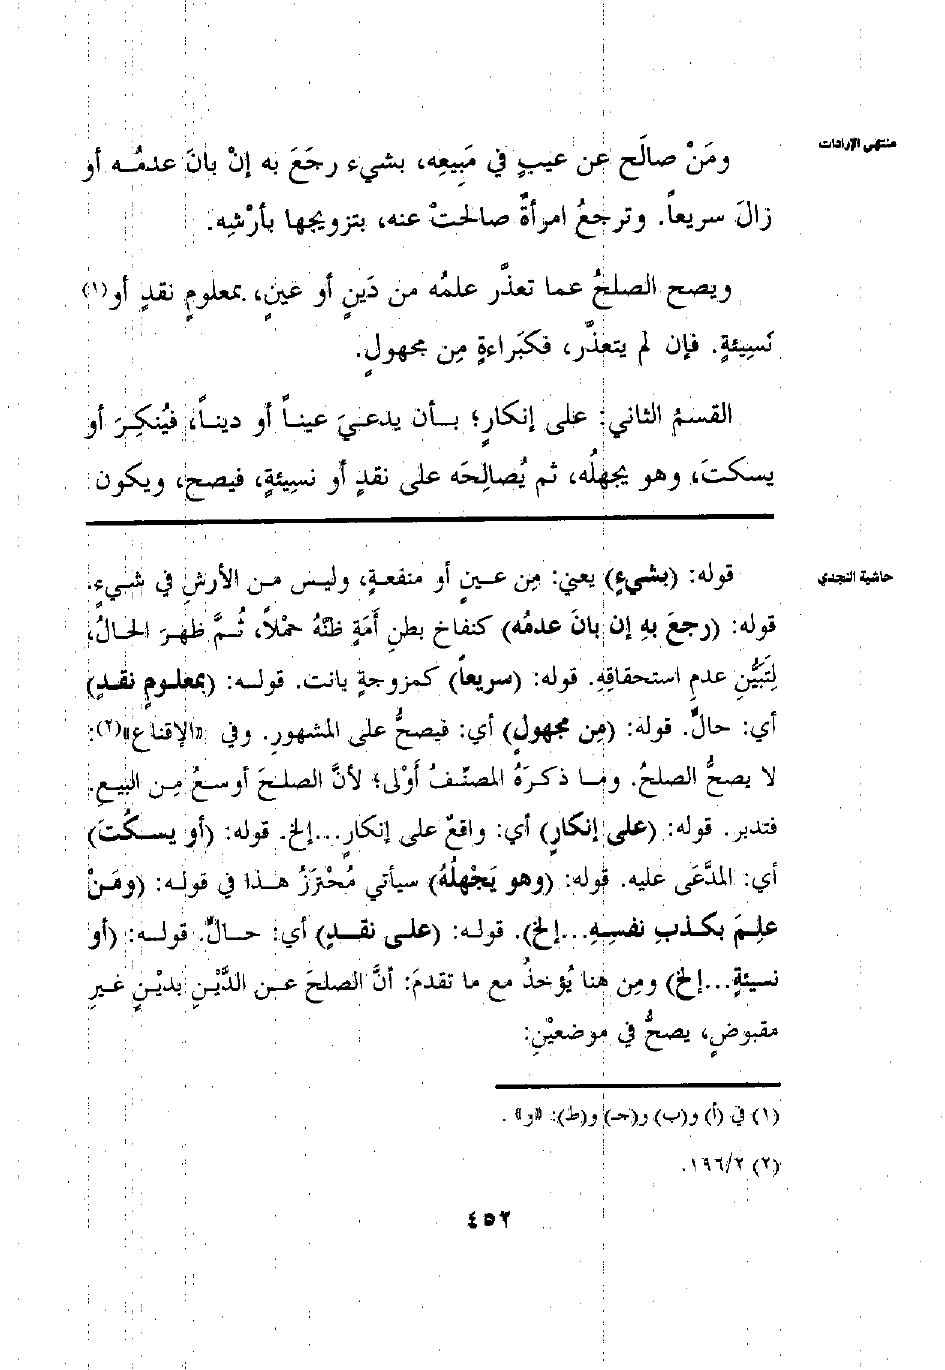 منتهى الإرادات
ومَنْ صالَح عن عيبٍ في مَبِيعِه، بشيء رجَعَ به إنْ بانَ عدمُـه أو
زالَ سريعاً. وترجعُ امرأةٌ صالحتْ عنه، بتزويجها بأرْشِه.
ويصح الصلحُ عما تعذَّر علمُه من دَينٍ أو عَينٍ، بمعلومٍ نقدٍ أو(١)
نَسِيئةٍ. فإن لم يتعذَّر، فكبَراءةٍ مِن مجهولٍ.
القسمُ الثاني: على إنكارٍ؛ بـأن يدعـيَ عينـاً أو دينـاً، فيُنكِـرَ أو
يسكتَ، وهو يجهلُه، ثم يُصالِحَه على نقدٍ أو نسِيئةٍ، فيصح، ويكون
حاشية النجدي
قوله: (بشيءٍ) يعني: مِن عـينٍ أو منفعـةٍ، وليس مـن الأرشِ في شـيءٍ.
قوله: (رجعَ بهِ إن بانَ عدمُه) كنفاخ بطنِ أَمَةٍ ظنَّهُ حمْلاً، ثُـمَّ ظهرَ الحالُ،
لِتَبيُّنِ عدمِ استحقاقِهِ. قوله: (سريعاً) كمزوجةٍ بانت. قولـه: (بمعلـومٍ نقـدٍ)
أي: حالٍّ. قوله: (مِن مجهولٍ) أي: فيصحُّ على المشهورِ. وفي «الإقناع»(٢):
لا يصحُّ الصلحُ. ومـا ذكـرَهُ المصنّـفُ أَوْلى؛ لأنَّ الصلـحَ أوسـعُ مِـن البيـعِ.
فتدبر. قوله: (على إنكارٍ) أي: واقعٌ على إنكارٍ...إلخ. قوله: (أو يسـكُتَ)
أي: المدَّعَى عليه. قوله: (وهو يَجْهلُهُ) سيأتي مُحْتَرَزُ هـذا في قولـه: (ومَـنْ
علِمَ بكـذبِ نفسِـهِ...إلخ). قولـه: (علـى نقـدٍ) أي: حـالٍّ. قولـه: (أو
نسيئةٍ...إلخ) ومِن هنا يُؤخذُ مع ما تقدمَ: أنَّ الصلحَ عـن الدَّيْـنِ بديْـنٍ غـيرِ
مقبوضٍ، يصحُّ في موضعيْنِ:
(١) في (أ) و(ب) و(جـ) و(ط): «و» .
(٢) ١٩٦/٢.
٤٥٢